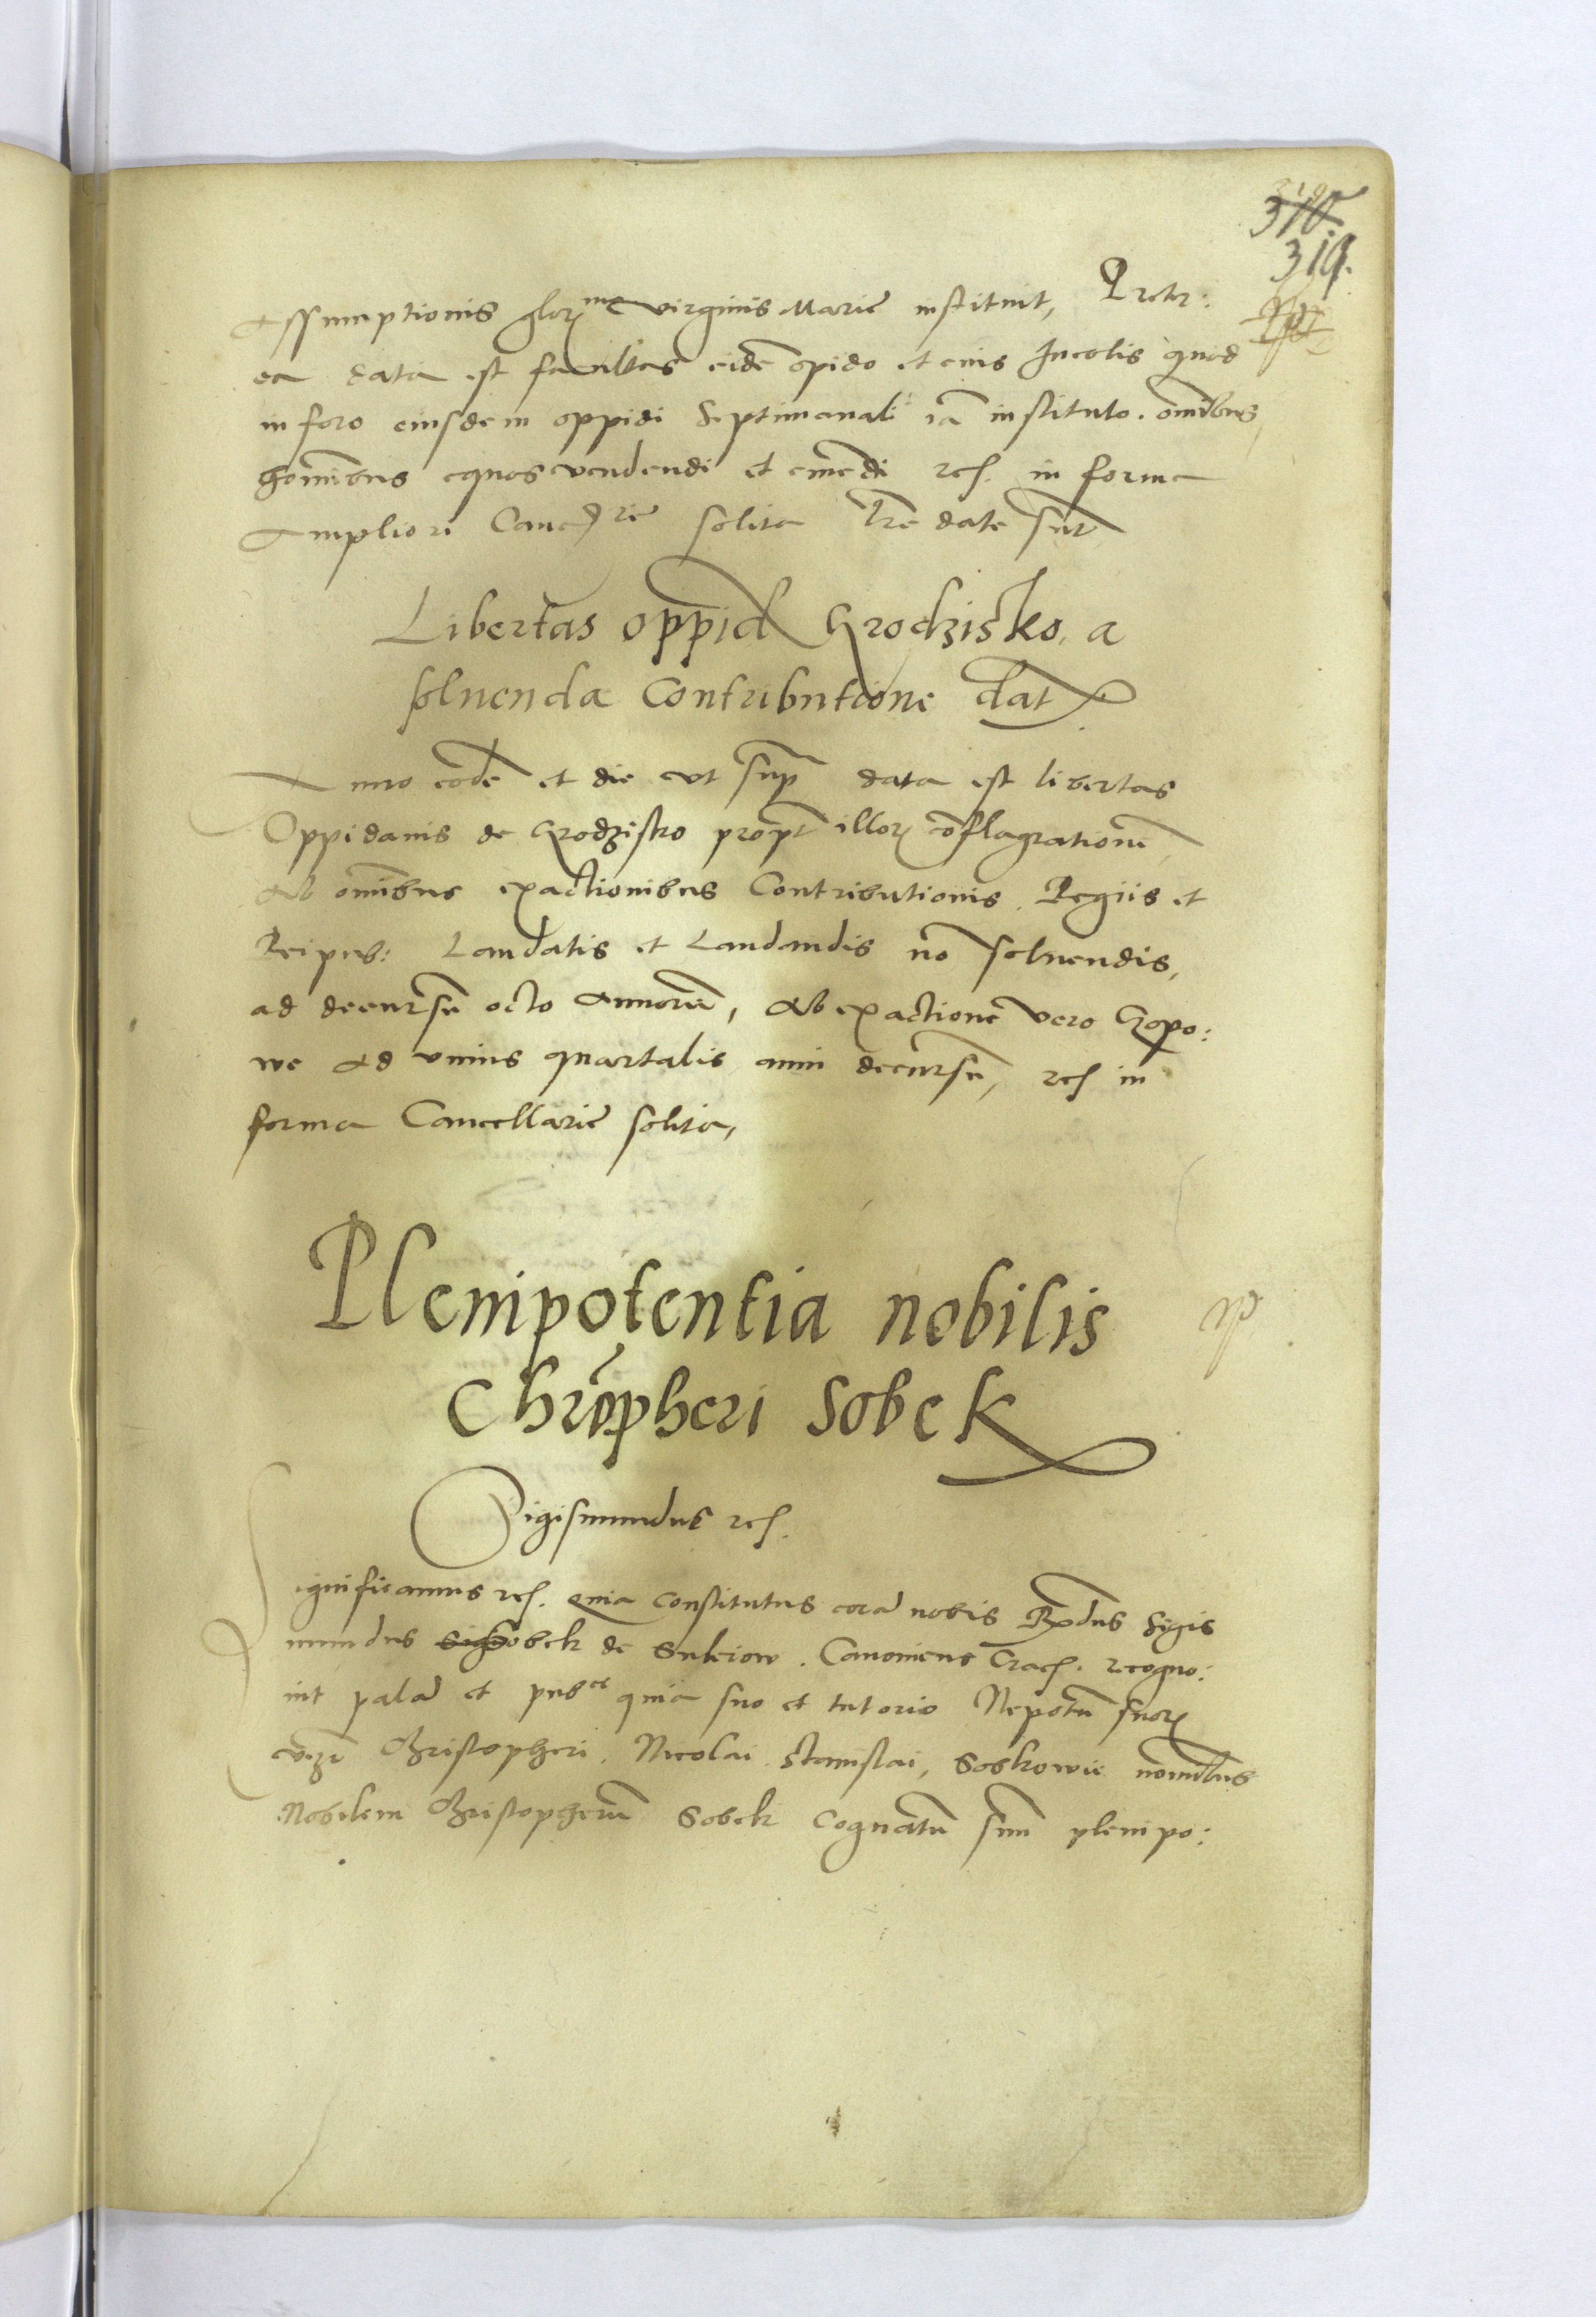 319
310.
319.
Assumptionis glor<sup>me</sup> virginis Marie instituit, Preter:
ea data est facultas eidē opido et eius Incolis quod
in foro eiusdem oppidi Septimanali iā instituto. omībus
homībus equos vendendi et emēdi etc. in forma
Ampliori Canc<sup>rie</sup> solita lrē date sūt
Libertas oppid Grodzisko, a
soluenda Contributione dat
Anno eodē et die vt sup data est libertas
Oppidanis de Grodzisko propt illor cōflagrationē,
Ab omībus exactionibus Contributionis Regiis et
Reipub: Laudatis et Laudandis nō soluendis,
ad decursū octo Annorū, Ab exactione vero Czopo:
we Ad vnius quartalis anni decursū, etc in
forma Cancellarie solita,
Plenipotentia nobilis
Chrōpheri Sobek
Sigismundus etc.
Significamus etc. quia Constitutus corā nobis Rdus Sigis
mundus Sobek de Suleiow. Canonicus Crac. recogno:
uit palā et pub<sup>ce</sup> quia suo et tutorio Nepotū suor
Christopheri. Nicolai Stanislai, noībus
Nobilem Christopherū Sobek Cognatū suū plenipo: